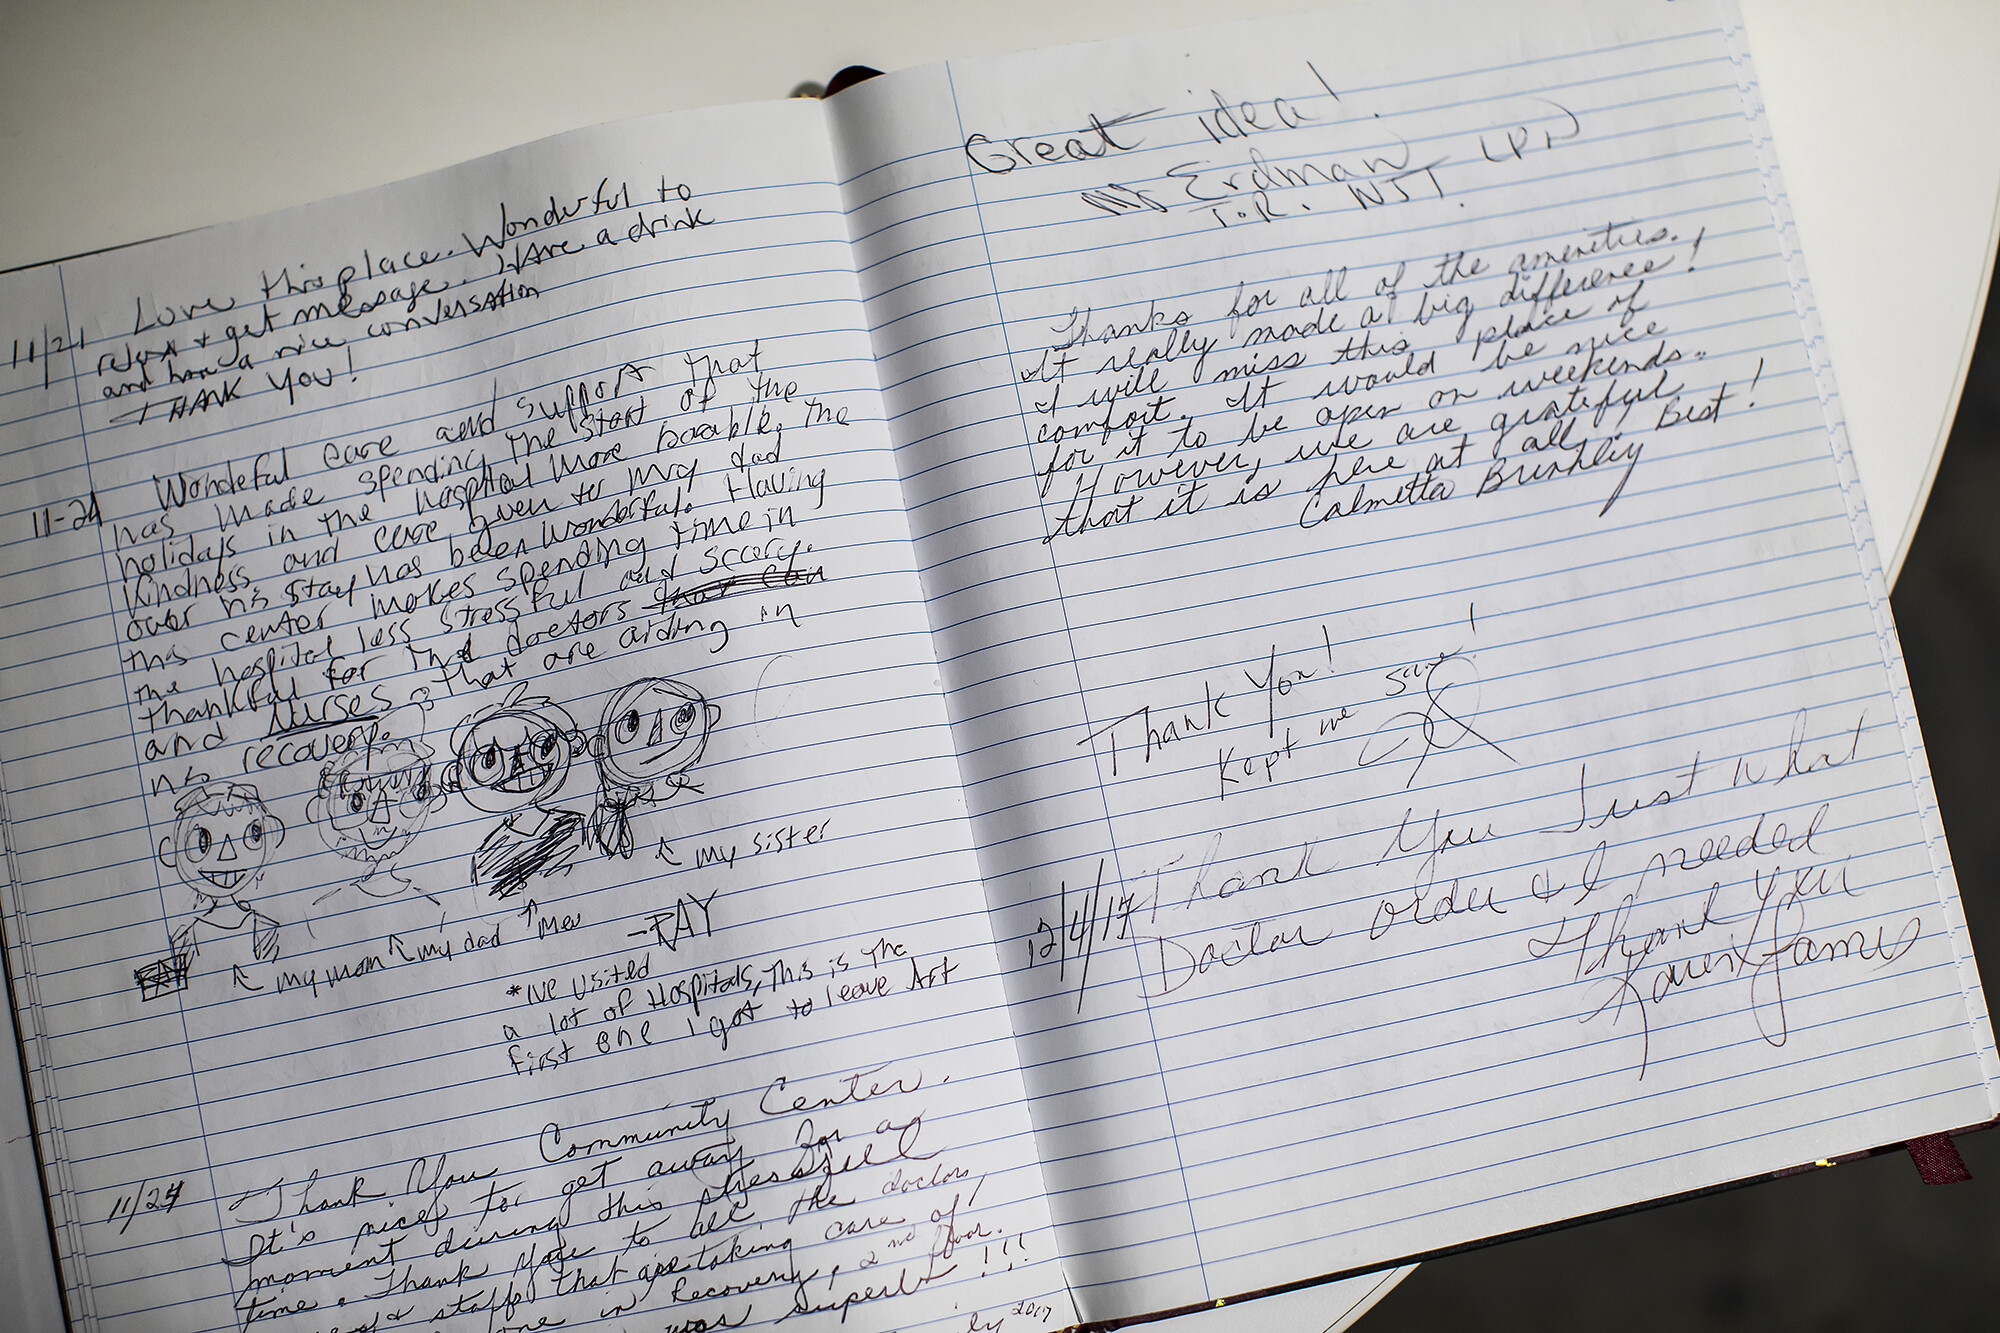 11/21 Love this place. Wonderful to
relax + get message. Have a drink
and have a nice conversation
THANK YOU!
11-24 Wondeful care and support that
has made spending the start of the
holidays in the hospital more bearable, the
kindness and care given to my dad
over his stay has been wonderful. Having
this center makes spending time in
the hospital less stressful and scary.
thankful for the doctors that can
and Nurses that are aiding in
his recovery.
my mom my dad Me my sister
-RAY
*I've visited
a lot of Hospitals, This is the
first one I got to leave Art
11/24 Thank You Community Center.
It's nice to get away for a
moment during this stressful
time. Thank you to all the doctors,
staff that are taking care of
in Recovery, 2nd floor.
was superb!!!
2017
Great idea!
Erdman LPN
T.R. NJ
Thanks for all of the amenities.
It really made a big difference!
I will miss this place of
comfort. It would be nice
for it to be open on weekends.
However, we are grateful
that it is here at all. Best!
Calmetta
Thank You!
Kept me sane!
12/4/17 Thank You Just what
Doctor order & I needed
Thank You
Karen James